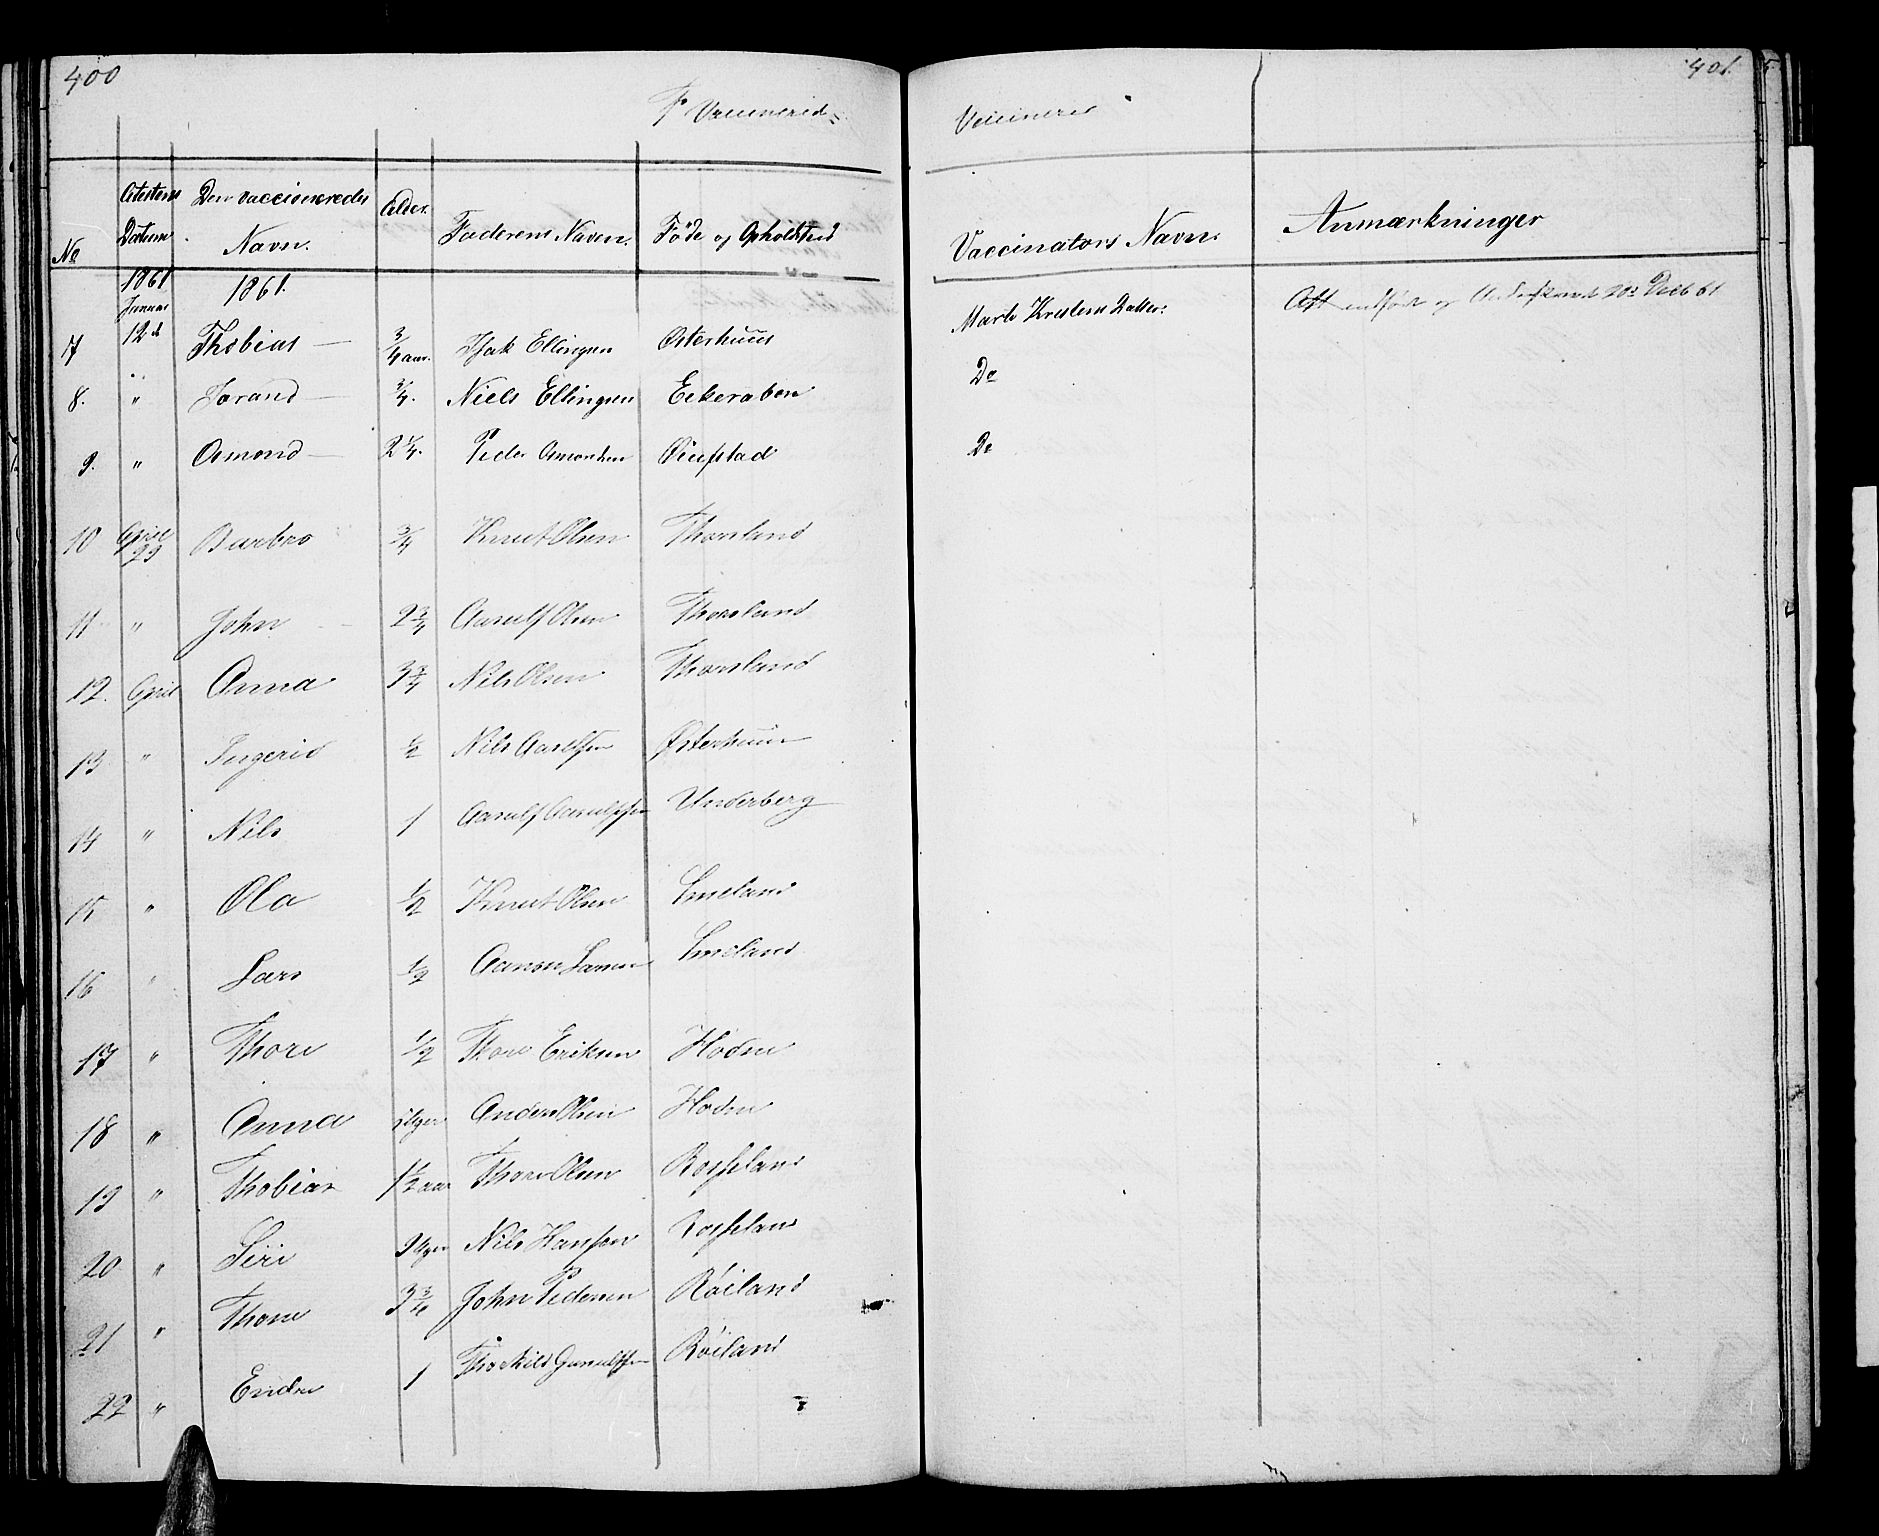 400
F. Vaccinerede
No | Attestens Datum | Den vaccineredes Navn. | Alder. | Faderens Navn. | Føde og Opholdsted
1861 Januar | 1861.
7 | 12te | Thobias — | 3/4 aar. | Isak Ellingsen | Osterhuus
8. | " | Jorand — | 3/4. | Niels Ellingsen | Eikeraben
9. | " | Osmond — | 2 1/4. | Peder Osmondsen | Øiufstad
10 | April 29 | Barbro | 3/4 | Knut Olsen | Thorsland
11 | " | John | 2 3/4 | Aanulf Olsen | Thorsland
12. | April | Anna | 3 3/4 | Nils Olsen | Thorsland
13 | " | Ingerid | 1/2 | Nils | Østerhuus
14 | " | Nils | 1 | Aanulf Aanulfsen | Underberg
15 | " | Ola | 1/2 | Knut Olsen | Smeland
16 | " | Lars | 1/2 | Aanon Larsen | Smeland
17 | " | Thore | 1/2 | Thore Eriksen | Hodne
18 | " | Anna | Uger | Anders Olsen | Hodne
19 | " | Thobias | 1 1/2 aar | Thore Olsen | Rosseland
20 | " | Siri | 9 Uger | Nils Hansen | Rosseland
21 | " | Thone | 3 3/4 | John Pedersen | Røiland
22 | " | Endre | 1 | Thorkild Gunulfsen | Røiland
401.
Vaccinerede
Vaccinators Navn. | Anmærkninger
Marte Kristens Datter. | Att indført og 20de Decb 61
Do
Do